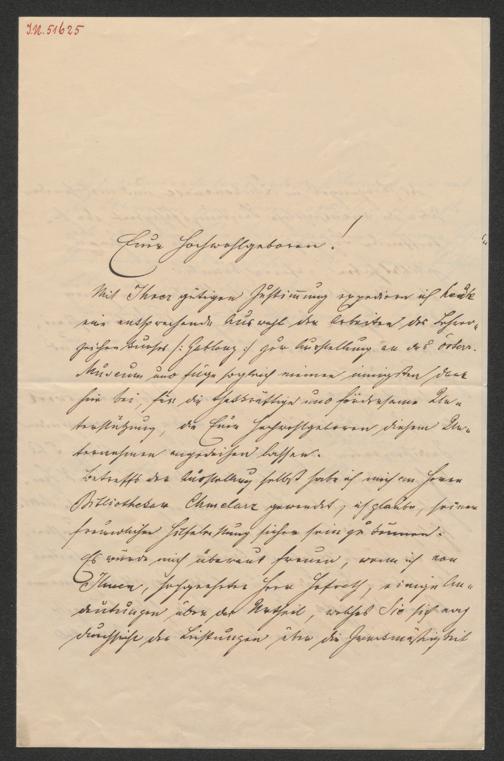 I.N. 51625
Euer Hochwohlgeboren!
Mit Ihrer gütigen Zustimmung expediere ich heute
eine entsprechende Auswahl der Arbeiten des Lehrer-
zeichencurses /: Gablonz :/ zur Ausstellung an das österr.
Museum und füge sogleich meinen innigsten Dank
hie bei, für die thatkräftige und fördernde Un-
terstützung, die Euer Hochwohlgeboren diesem Un-
ternehmen angedeihen lassen.
Betreffs der Ausstellung selbst habe ich mich an Herrn
Bibliothekar Chmelarz gewendet, ich glaube, seiner
freundlichen Hilfeleistung sicher sein zu können.
Es würde mich überaus freuen, wenn ich von
Ihnen, hochgeehrter Herr Hofrath, einige An-
deutungen über das Urtheil, welches Sie sich nach
Durchsicht der Leistungen über die Zweckmäßigkeit